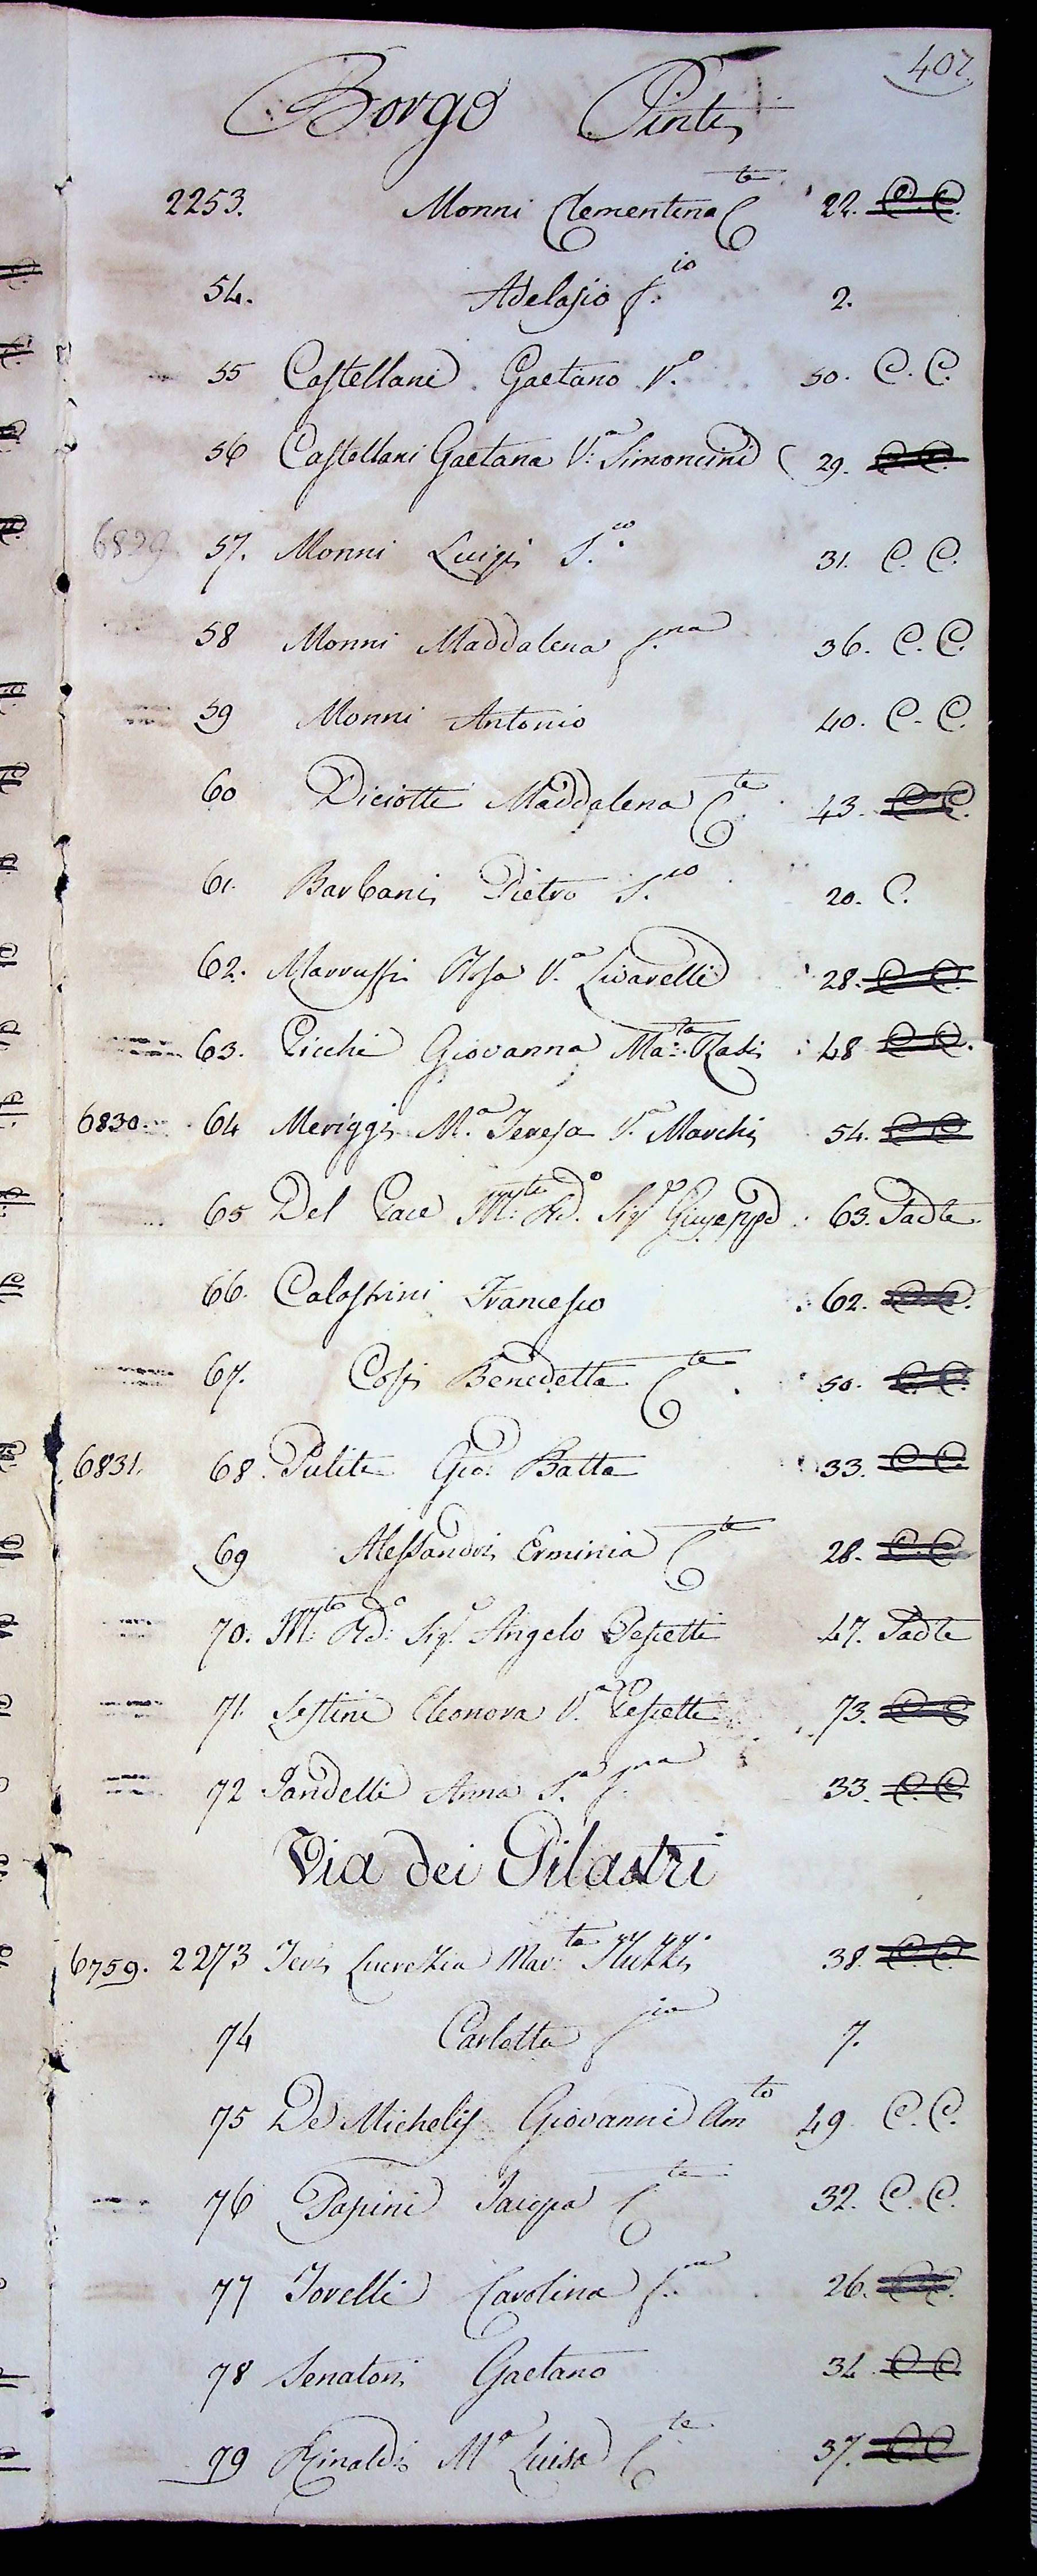 407.
Borgo Pinti
2253. Monni Clementina C.te 22. C. C.
54. Adelasio f.io 2.
55 Castellani Gaetano V.o 50. C. C.
56 Castellani Gaetana V.a Simoncini 29. C. C.
6829 57. Monni Luigi S.co 31. C. C.
58 Monni Maddalena f.na 36. C. C.
59 Monni Antonio 40. C. C.
60 Diciotti Maddalena C.te 43. C. C.
61. Barbani Pietro S.co 20. C.
62. Marrussi Rosa V.a Livarelli 28. C. C.
63. Picchi Giovanna Ma:ta Radi 48 C. C.
6830. 64 Meriggi M.a Teresa V.a Marchi 54. C. C.
65 Del Pace M:to Rd.o Sig.r Giuseppe 63. Sadte
66. Calastrini Francesco 62. C. C.
67. Cosi Benedetta C.te 50. C. C.
6831. 68. Puliti Gio: Batta 33. C. C.
69 Alessandri Erminia C.te 28. C. C.
70. M:to Rd:o Sig.r Angelo Pescetti 47. Sadte
71. Sestini Eleonora V.a Pescetti 73. C. C.
72 Sandelli Anna S.a f.na 33. C. C.
Via dei Pilastri
6759. 2273 Levi Lucrezia Mar:ta Stukki 38. C. C.
74 Carlotta f.ia 7.
75 De Michelis Giovanni Am.to 49 C. C.
76 Papini Jacopa C.te 32. C. C.
77 Torelli Carolina f.na 26. C. C.
78 Senatori Gaetano 34. C. C.
79 Rinaldi M.a Luisa C.te 37. C. C.